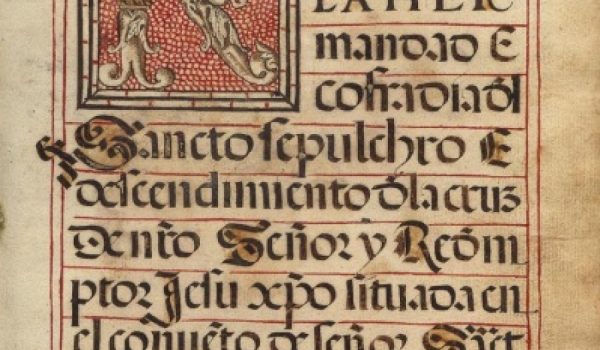 LA HER
mandad E
cofradia dl
Sancto sepulchro E
descendimiento dla cruz
de nr̃o Señor y Redem
ptor Jesu xp̃o situada en
el conuẽto de señor Sãct